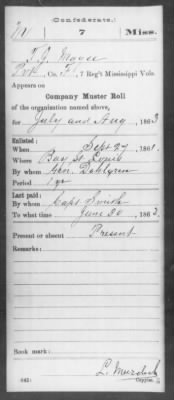 (Confederate.)
M 7 Miss.
T. J. Magee
Pvt, Co. F, 7 Reg't Mississippi Vols.
Appears on
Company Muster Roll
of the organization named above,
for July and Aug, 1863.
Enlisted:
When Sept 27, 1861.
Where Bay St Louis
By whom Gen. Dahlgren
Period 1 yr
Last paid:
By whom Capt Smith
To what time June 30, 1863.
Present or absent Present
Remarks:
Book mark:
L. Murdock
(642) Copyist.